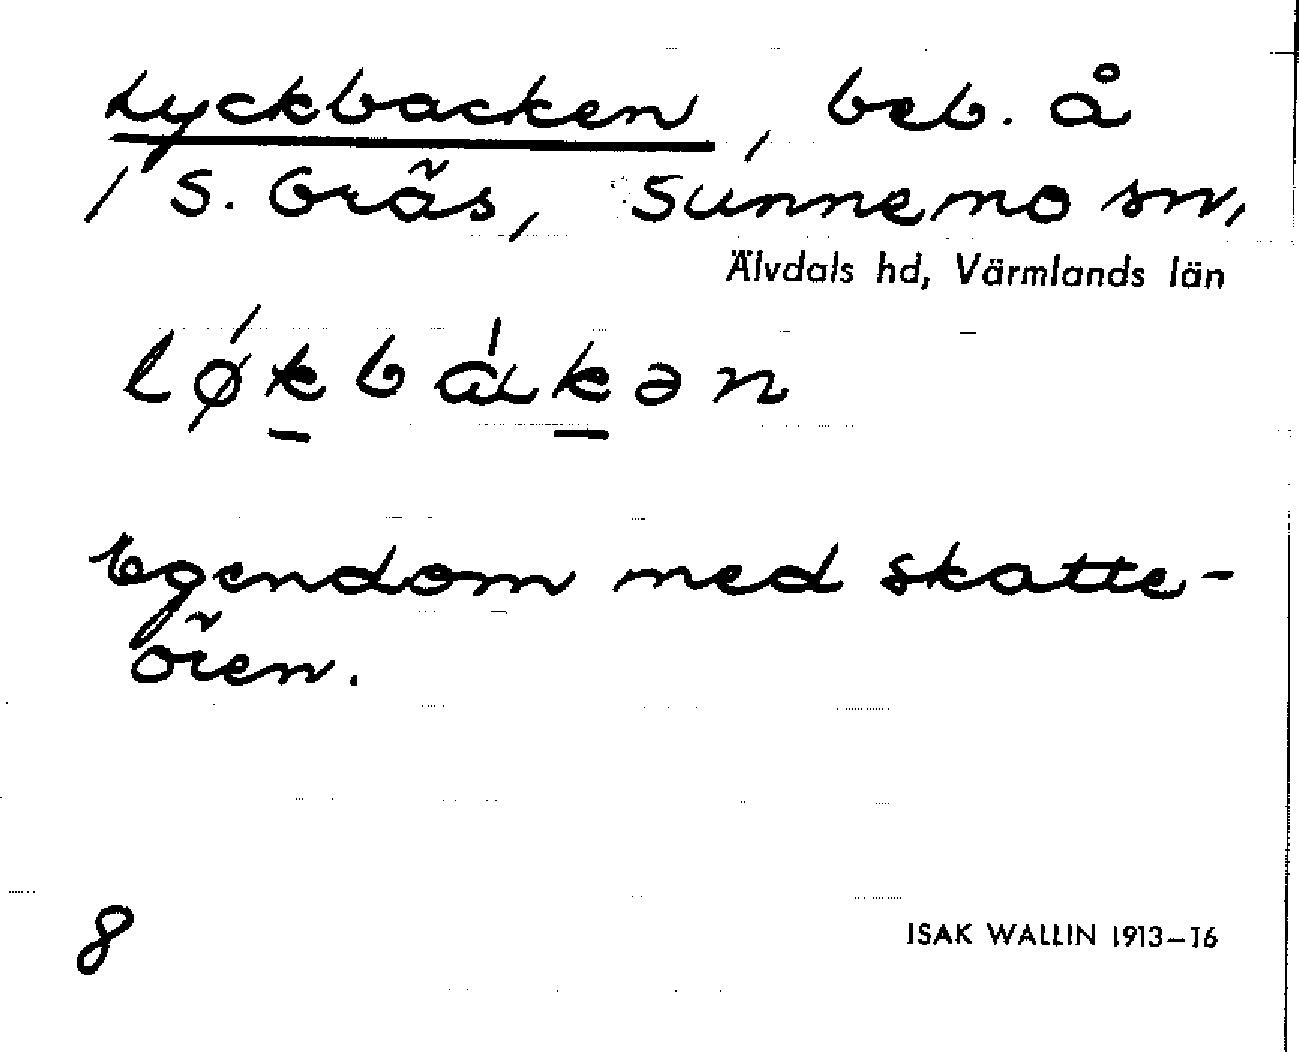 Lyckbacken, beb. å
/ S. Gräs, Sunnemo sn,
Älvdals hd, Värmlands län
løkbákən
Egendom med skatte-
ören.
8
ISAK WALLIN 1913–16